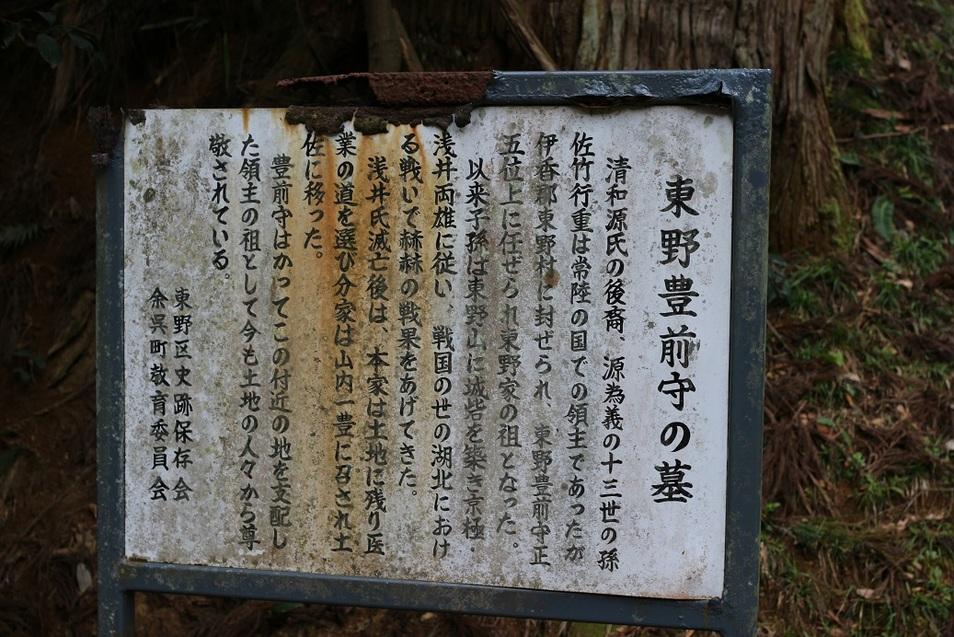 東野豊前守の墓
清和源氏の後裔、源為義の十三世の孫
佐竹行重は常陸の国での領主であったが
伊香郡東野村に封ぜられ、東野豊前守正
五位上に任せられ東野家の祖となった。
以来子孫は東野山に城砦を築き京極・
浅井両雄に従い、戦国の世の湖北におけ
る戦いで赫赫の戦果をあげてきた。
浅井氏滅亡後は、本家は土地に残り医
業の道を選び分家は山内一豊に召され土
佐に移った。
豊前守はかつてこの付近の地を支配し
た領主の祖として今も土地の人々から尊
敬されている。
東野区史跡保存会
余呉町教育委員会